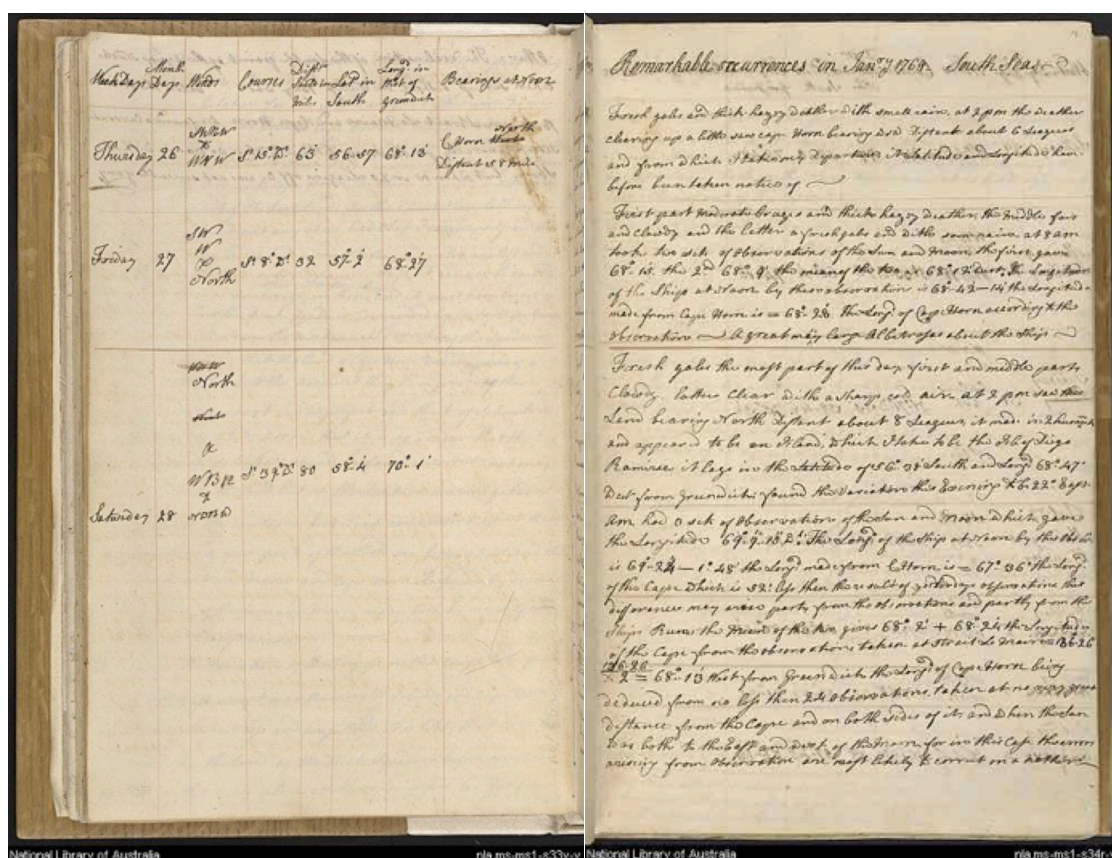 Week Days Month Days Winds Courses Dist.ce Sail'd in Miles Lat.d in South Long.d in West of Greenwich Bearings at Noon
Thursday 26 WNW S.o 15° W.t 63 56..57 68..13 C. Horn North Distant 58 Mile
Friday 27 SW W to North S.o 8° W.t 32 57..2 68°..27
North
a
Saturday 28 80 58..4 70°..1
Remarkable occurrences in Jan.ry 1769. South Seas
Fresh gales and thick hazey weather with small rain, at 2 pm the weather
clearing up a little saw cape Horn bearing Distant about 6 Leagues
and from which I take my Departure, its latitude and longitude have
before been taken notice of
First part moderate and thick hazey weather, the middle fair
and cloudy and the latter a fresh gales and with some rain. at 8 am
took two sets of Observations of the Sun and Moon, the first gave
68° 15', the 2.d 68°..9' the mean of the two is 68°..12' West, the Longitude
of the Ship at Noon by these observation is 68°-42' — 14' the Longitude
made from Cape Horn is = 68°..28' the Long.d of Cape Horn according to the
observation — A great many large Albetroses about the Ship
Fresh gales the most part of this day, first and middle parts
Cloudy, latter Clear with a sharp cold air. at 2 pm saw the
Land bearing North Distant about 8 Leagues, it made in 2 hummocks
and appear'd to be an Island, which I take to be the Isle of Diego
Ramirez it lays in the Latitude of 56°..38' South and Long.d 68°..47'
West from Greenwich; found the Variation this Evening to be 22° East
am had 3 sets of Observations of the Sun and Moon which gave
the Longitude 69°..7'..15" W.t The Long.d of the Ship at Noon by the
is 69°-24' — 1°..48' the Long.d made from C. Horn is = 67°..36' the Long.d
of the Cape which is 52' less then the result of yesterdays observations this
difference may arise partly from the observations and partly from the
Ships Run; the Mean of the two gives 68°..2' + 68°..24' the Longitude
of the Cape from the observations taken at Strait Le Maire 136..26
136..26
÷ 2 = 68°..13' West from Greenwich the Long.d of Cape Horn being
deduced from no less then 24 Observations, taken at no very great
distance from the Cape and on both sides of it, and when the Sun
was both to the East and West of the Moon; for in this Case the errors
arising from observation are most likely to correct one another
National Library of Australia
nla.ms-ms1-s33v-v
National Library of Australia
nla.ms-ms1-s34r-v